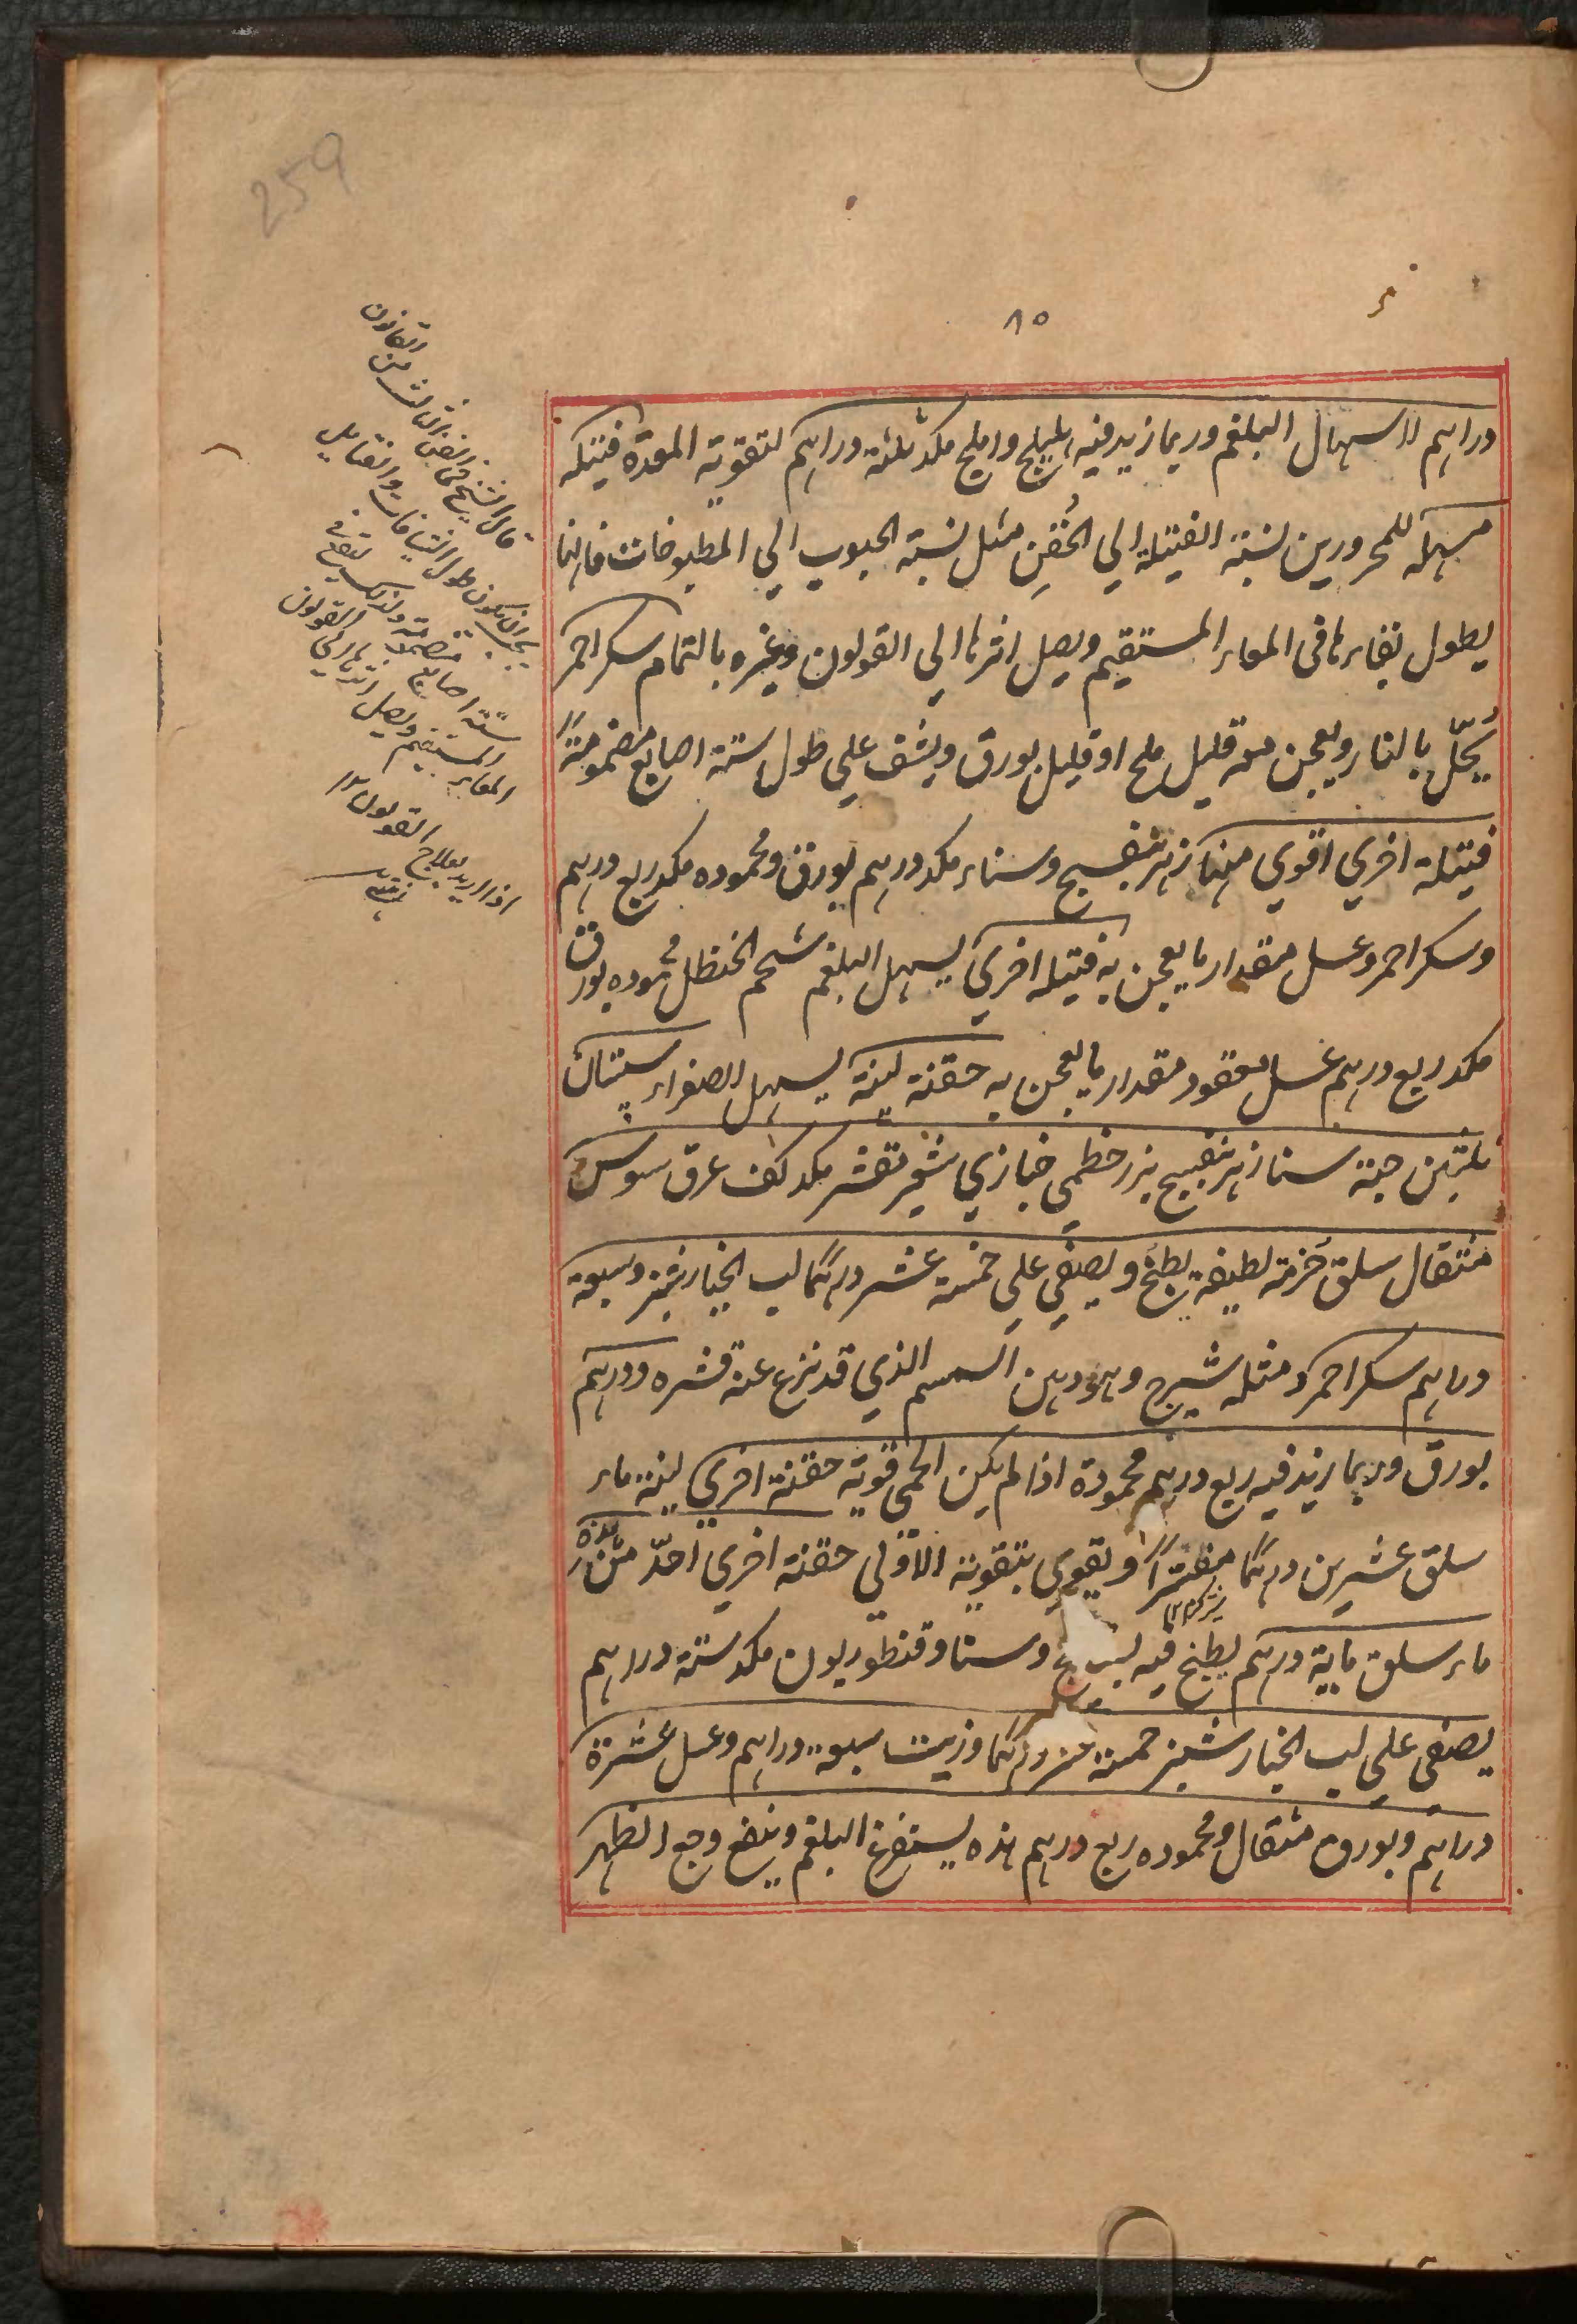 259
٨٥
دراهم لاسهال البلغم وربما زيد فيه اهليلج واملج مكد ثلثة دراهم لتقوية المعدة فتيلة
مسهلة للمحرورين نسبة الفتيلة الي الحُقَنِ مثل نسبة الحبوب الي المطبوخات فانها
يطول بقاءها فى المعاء المستقيم ويصل اثرها الي القولون وغيره بالتمام سكر احمر
يُحلّ بالنار ويعجن معه قليل ملح او قليل بورق ويشف علي طول ستة اصابع مضمومةً
فتيلة اخري اقوي منها زهر بنفسج وسناء مكد درهم بورق ومحموده مكد ربع درهم
وسكر احمر وعسل مقدار ما يعجن به فتيله اخري يسهل البلغم شحم الحنظل محموده بورق
مكد ربع درهم عسل معقود مقدار ما يعجن به حقنة لينة يسهل الصفراء سبستان
ثلثين حبة سنا زهر بنفسج بزر خطمي خبازي شعير مقشر مكد كف عرق سوس
مثقال سلق حُزمة لطيفة يطبخ ويصفي علي خمسة عشر درهما لب الخيار شنبر وسبعة
دراهم سكر احمر ومثله شيرج وهو دهن السمسم الذي قد نزع عنه قشره ودرهم
بورق وربما زيد فيه ربع درهم محمودة اذا لم يكن الحمي قوية حقنة اخري لينة ماء
سلق عشرين درهما مفترًا ويقوي بتقوية الاولي حقنة اخري احدّ من هذه
ماء سلق ماية درهم يطبخ فيه وسنا وقنطوريون مكد ستة دراهم
يصفي علي لب الخيار شنبر خمسة عشر درهما وزيت سبعة دراهم وعسل عشرة
دراهم وبورق مثقال ومحموده ربع درهم هذه يستفرغ البلغم وينفع وجع الظهر
قال الشيخ فى الفن الثالث من القانون
يجب ان يكون طول الشيافات والفتايل
ستة اصابع منضمة ولذلك يقع فى
المعاء المستقيم ويصل اثرها الي القولون
اذا اريد بعلاج القولون ١٢